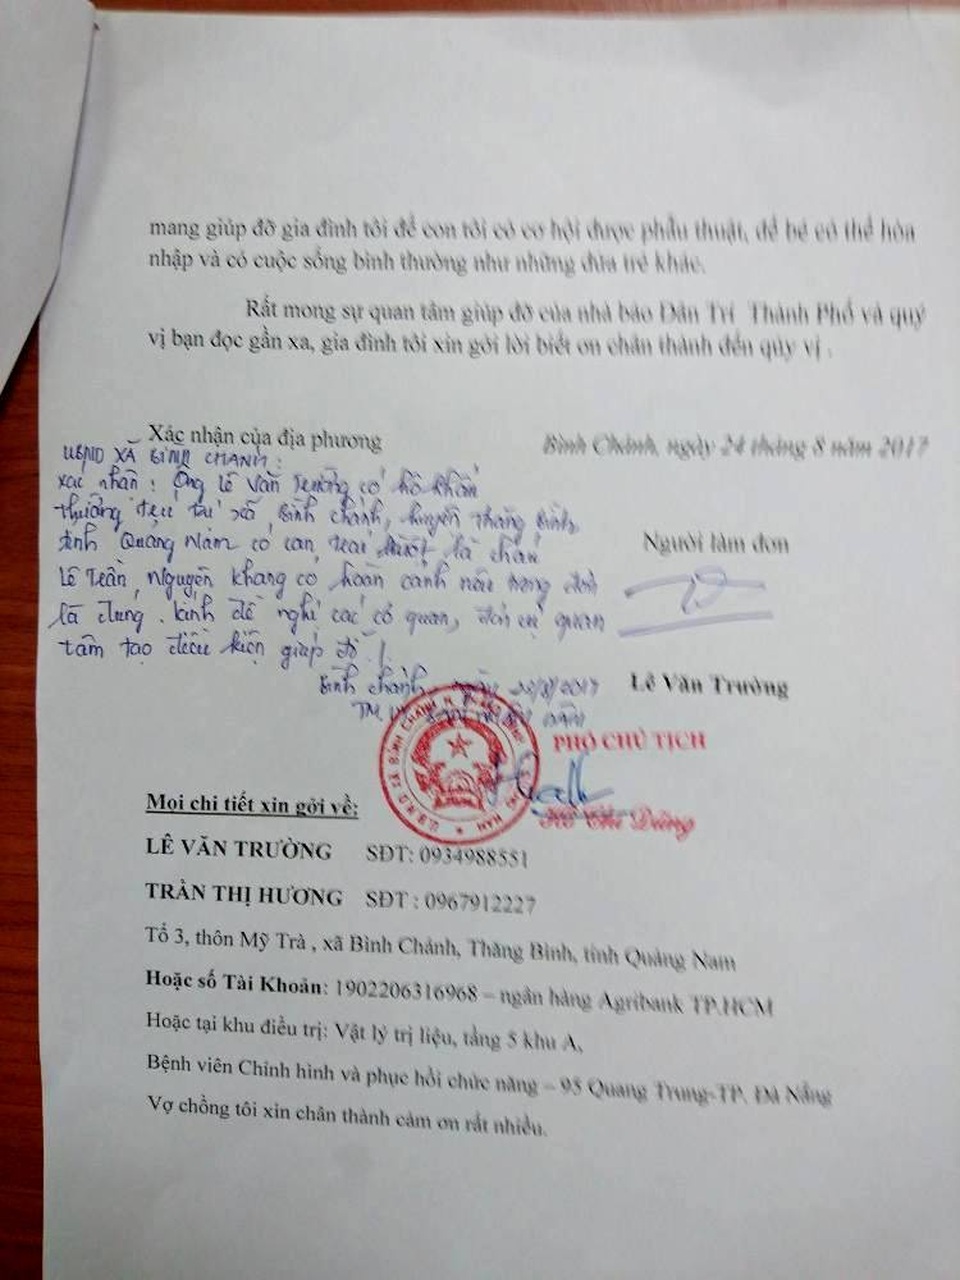 mang giúp đỡ gia đình tôi để con tôi có cơ hội được phẫu thuật, để bé có thể hòa
nhập và có cuộc sống bình thường như những đứa trẻ khác.
Rất mong sự quan tâm giúp đỡ của nhà báo Dân Trí Thành Phố và quý
vị bạn đọc gần xa, gia đình tôi xin gởi lời biết ơn chân thành đến qúy vị .
Xác nhận của địa phương
Bình Chánh, ngày 24 tháng 8 năm 2017
UBND XÃ BÌNH CHÁNH:
xác nhận: Ông Lê Văn Trường có hộ khẩu
thường trú tại xã Bình Chánh, huyện Thăng Bình,
tỉnh Quảng Nam có con trai là cháu
Lê Trần Nguyên Khang có hoàn cảnh nêu trong đơn
là đúng. Kính đề nghị các cơ quan, đơn vị quan
tâm tạo điều kiện giúp đỡ!
Người làm đơn
Lê Văn Trường
Bình Chánh, ngày /8/2017
TM
PHÓ CHỦ TỊCH
Mọi chi tiết xin gởi về:
LÊ VĂN TRƯỜNG SĐT: 0934988551
TRẦN THỊ HƯƠNG SĐT : 0967912227
Tổ 3, thôn Mỹ Trà , xã Bình Chánh, Thăng Bình, tỉnh Quảng Nam
Hoặc số Tài Khoản: 1902206316968 – ngân hàng Agribank TP.HCM
Hoặc tại khu điều trị: Vật lý trị liệu, tầng 5 khu A,
Bệnh viên Chỉnh hình và phục hồi chức năng – 95 Quang Trung-TP. Đà Nẵng
Vợ chồng tôi xin chân thành cảm ơn rất nhiều.